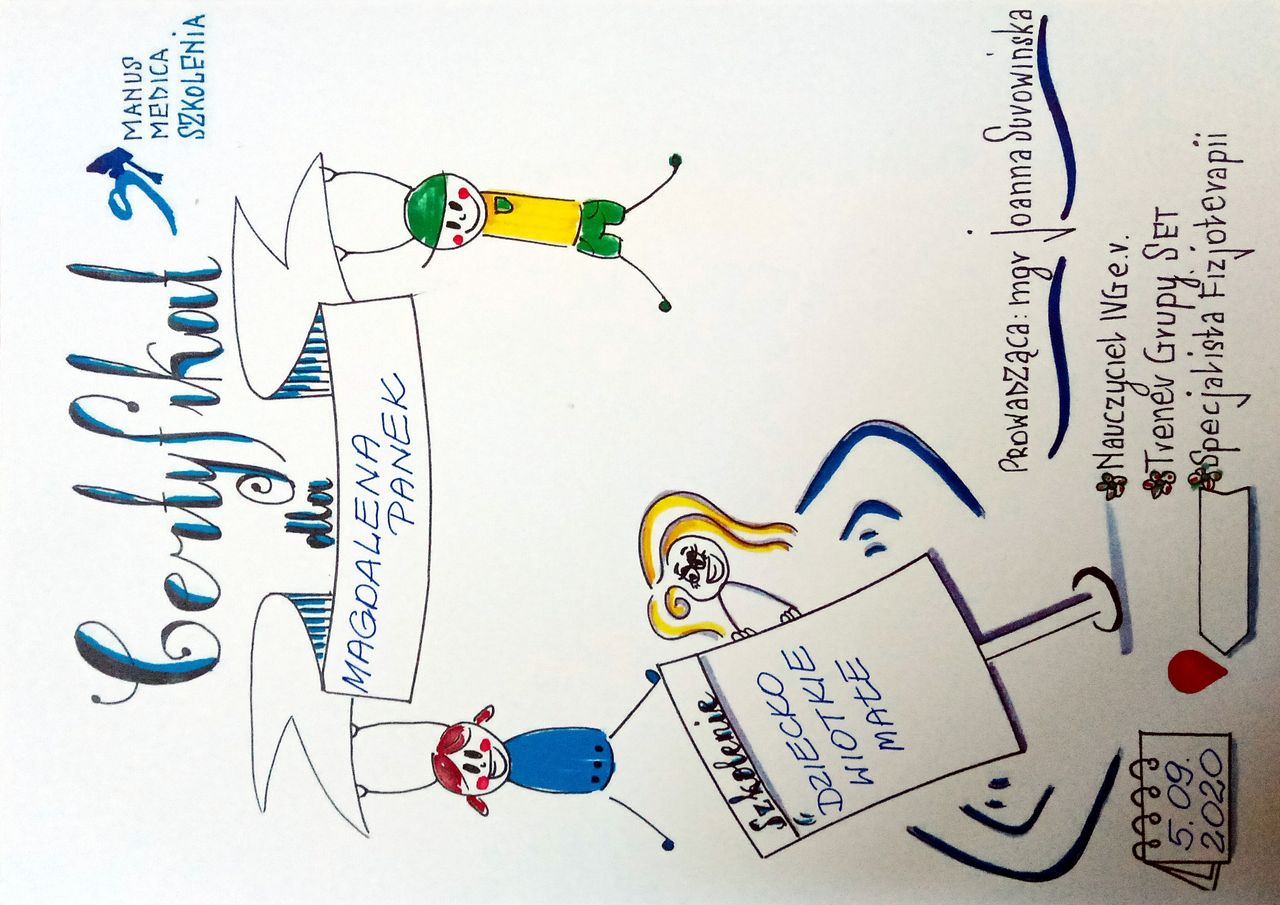 MANUS
MEDICA
SZKOLENIA
Certyfikat
dla
MAGDALENA
PANEK
Szkolenie
"DZIECKO
WIOTKIE
MAŁE
Prowadząca: mgr Joanna Surowińska
Nauczyciel IVGe.v.
Trener Grupy SET
Specjalista Fizjoterapii
5.09.
2020